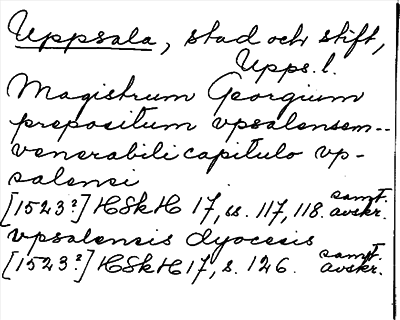 Uppsala, stad och stift,
Upps. l.
Magistrum Georgium
prepositum vpsalensem --
venerabili capitulo vp-
salensi
[1523?] HSkH 17, ss. 117, 118. samt. avskr.
vpsalensis dyocesis
[1523?] HSkH 17, s. 126. samt. avskr.